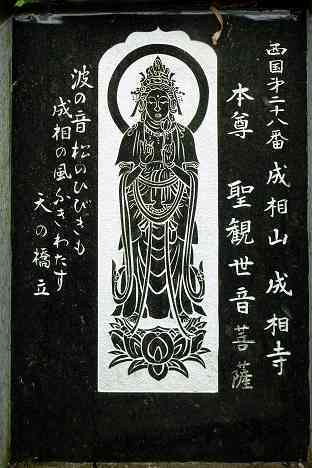 西国第二十八番 成相山 成相寺
本尊 聖観世音菩薩
波の音 松のひびきも
成相の風ふきわたす
天の橋立